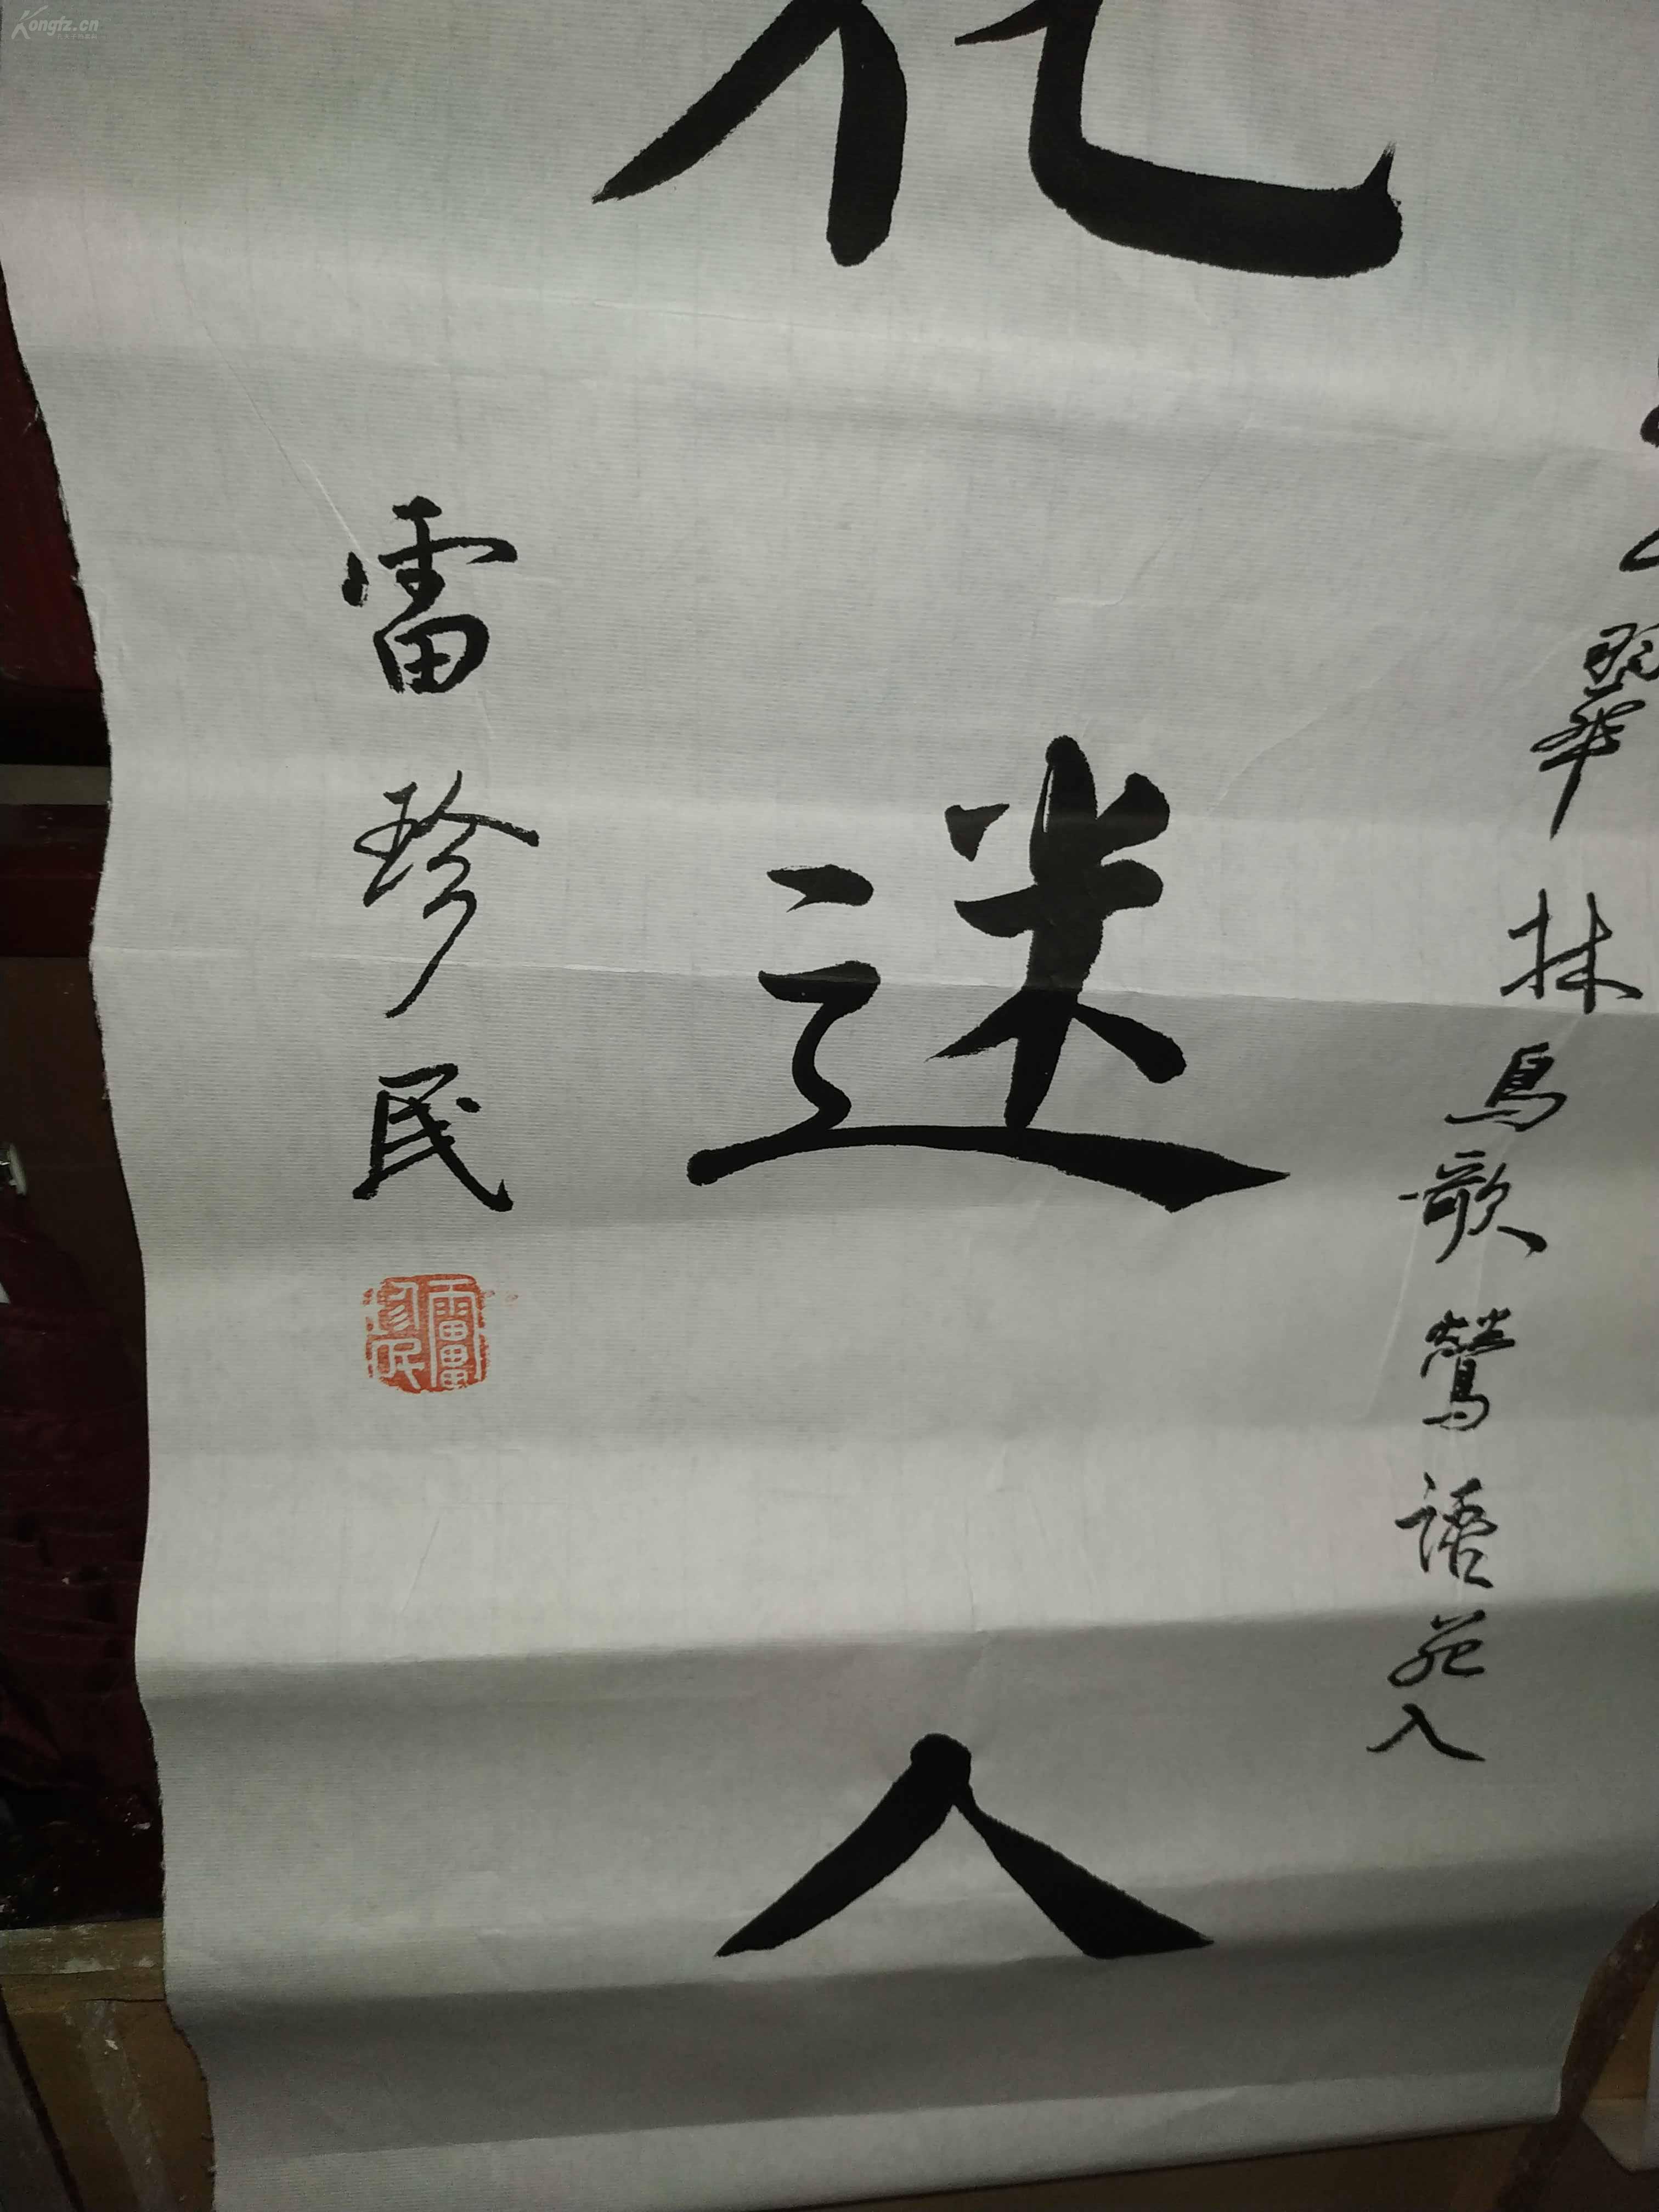 翠林鳥歌鶯語花入
花迷人
雷珍民
雷珍民
Kongfz.cn